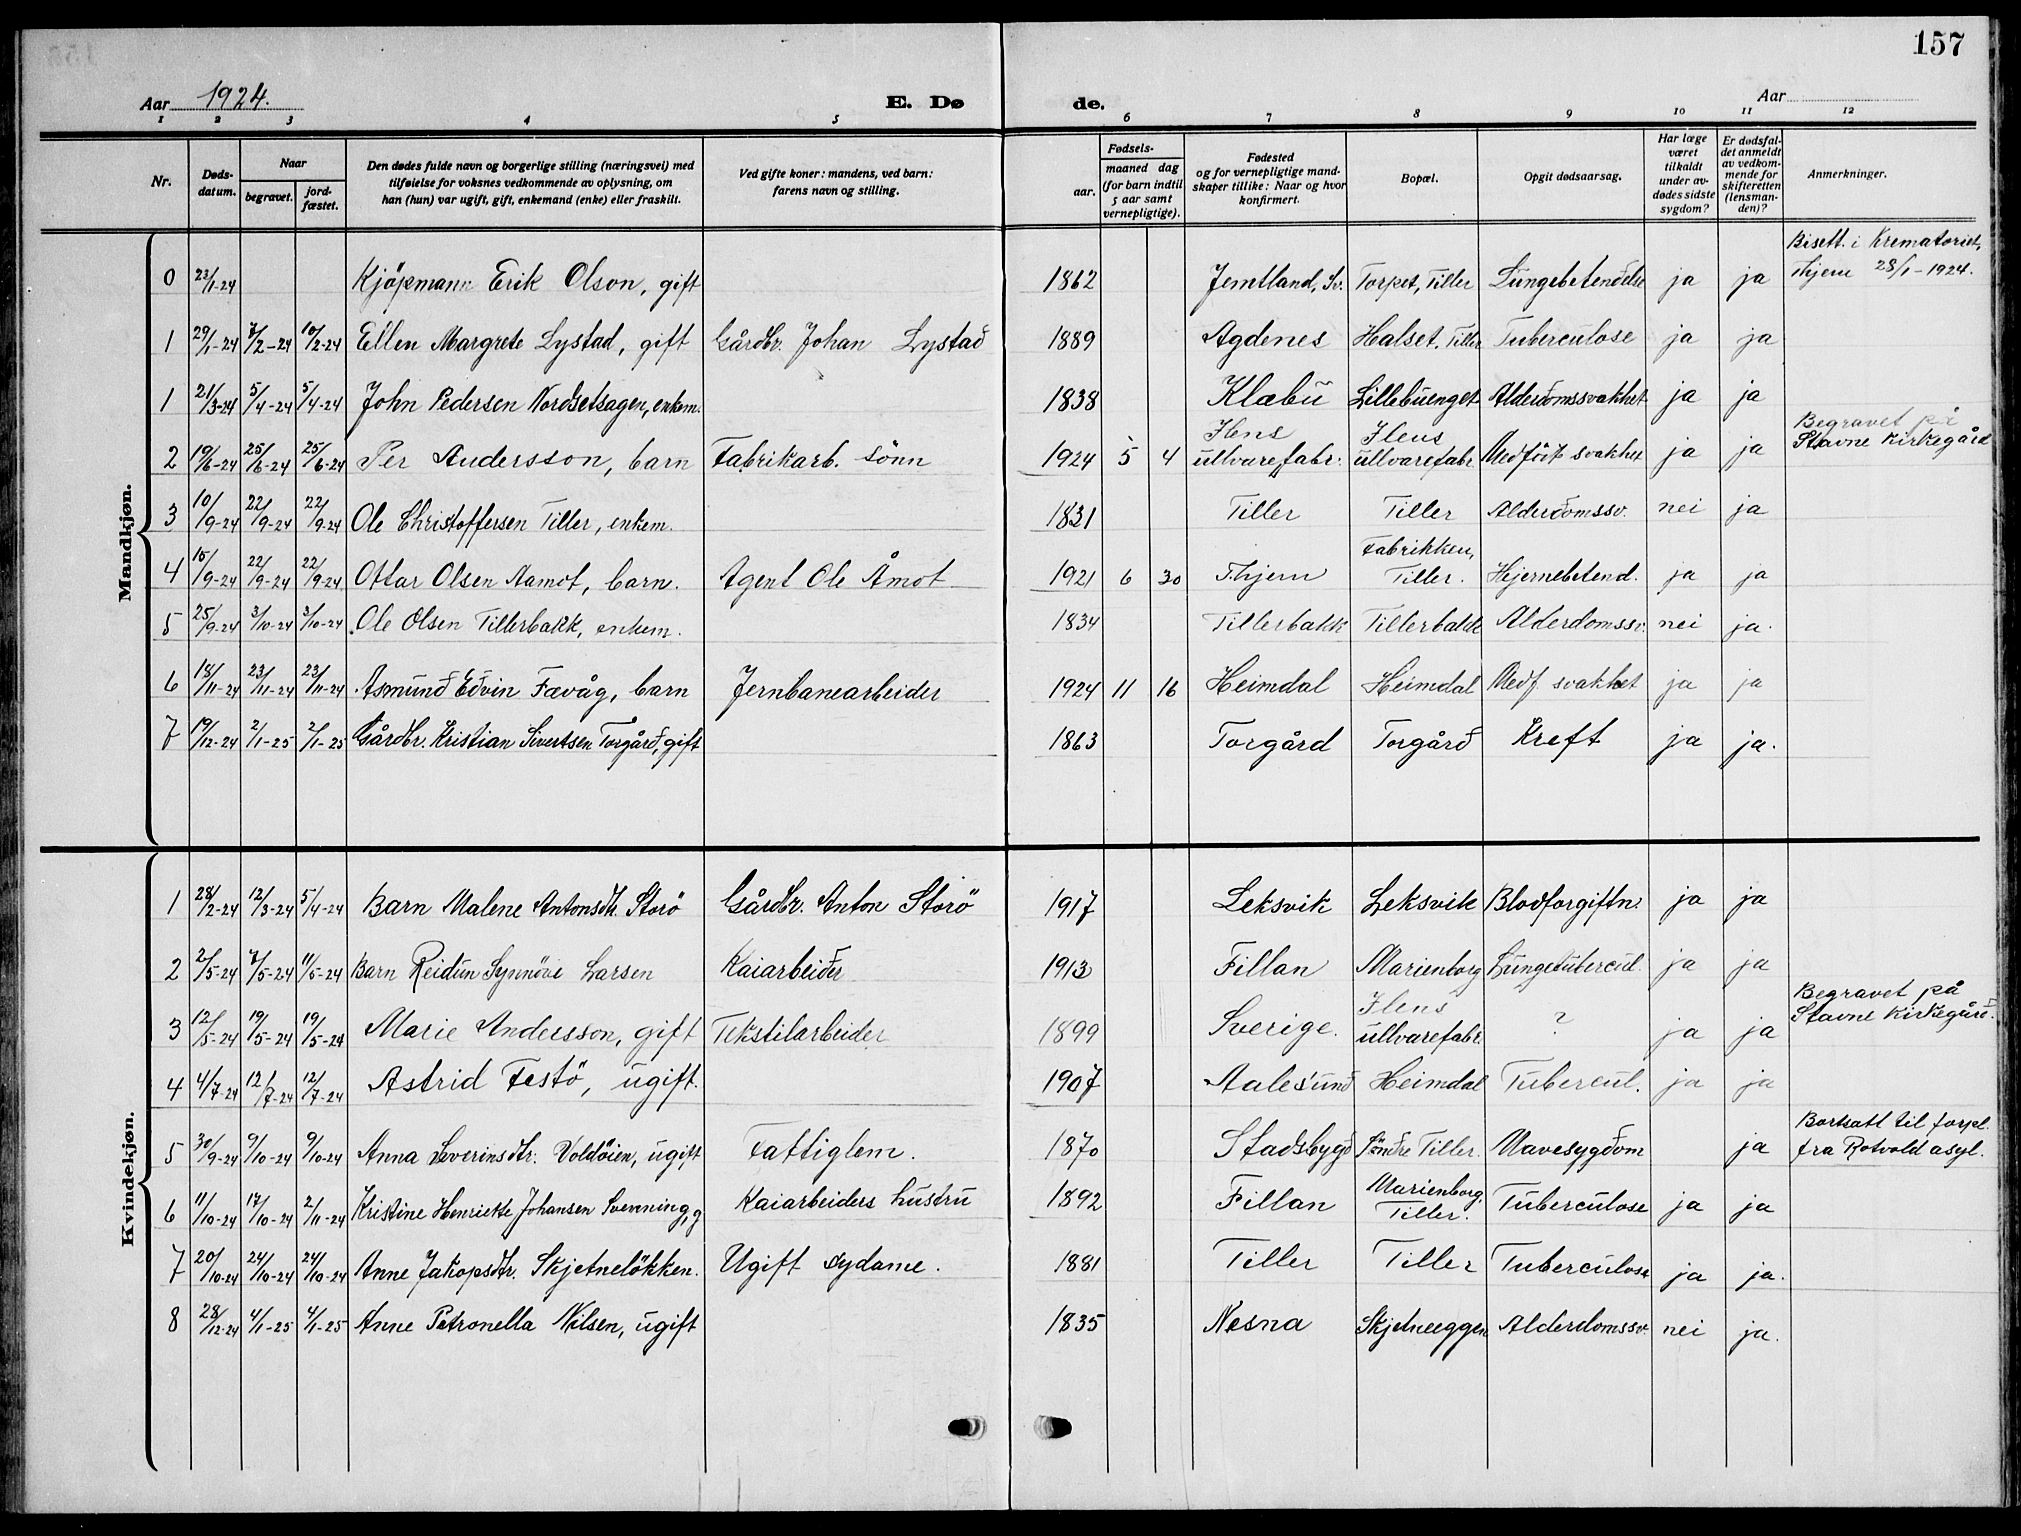 157
Aar 1924. E. Dø de. Aar
1 2 3 4 5 6 7 8 9 10 11 12
Nr. Døds-datum. Naar begravet. jord-fæstet. Den dødes fulde navn og borgerlige stilling (næringsvei) med tilføielse for voksnes vedkommende av oplysning, om han (hun) var ugift, gift, enkemand (enke) eller fraskilt. Ved gifte koner: mandens, ved barn: farens navn og stilling. Fødsels- aar. maaned dag (for barn indtil 5 aar samt vernepligtige). Fødested og for vernepligtige mand-skaper tillike: Naar og hvor konfirmert. Bopæl. Opgit dødsaarsag. Har læge været tilkaldt under av-dødes sidste sygdom? Er dødsfal-det anmeldt av vedkom-mende for skifteretten (lensman-den)? Anmerkninger.
Mandkjøn.
0 23/1-24 Kjöpmann Erik Olson, gift 1862 Jemtland, Sv. Torpet, Tiller Lungebetendelse ja ja Bisett. i Krematoriet, Thjem 28/1-1924.
1 29/1-24 7/2-24 10/2-24 Ellen Margrete Lystad, gift Gårdbr. Johan Lystad 1889 Agdenes Halset. Tiller Tuberculose ja ja
1 21/3-24 5/4-24 5/4-24 John Pedersen Nordsetsagen, enkem. 1838 Klæbu Lillebuenget Alderdomssvakhet ja ja
2 19/6-24 25/6-24 25/6-24 Per Andersson, barn Fabrikarb. sönn 1924 5 4 Ilens ullvarefabr. Ilens ullvarefabr. Medfödt svakhet ja ja Begravet på Stavne Kirkegård
3 10/9-24 22/9-24 22/9-24 Ole Christoffersen Tiller, enkem. 1831 Tiller Tiller Alderdomssv. nei ja
4 15/9-24 22/9-24 22/9-24 Ottar Olsen Aamot, barn. Agent Ole Åmot 1921 6 30 Thjem Fabrikken, Tiller. Hjernebetend. ja ja
5 25/9-24 3/10-24 3/10-24 Ole Olsen Tillerbakk, enkem. 1834 Tillerbakk Tillerbakk Alderdomssv. nei ja.
6 18/11-24 23/11-24 23/11-24 Asmund Edvin Fævåg, barn Jernbanearbeider 1924 11 16 Heimdal Heimdal Medf. svakhet ja ja
7 19/12-24 2/1-25 2/1-25 Gårdbr. Kristian Sivertsen Torgård, gift 1863 Torgård Torgård Kreft ja ja.
Kvindekjøn.
1 28/2-24 12/3-24 5/4-24 Barn Malene Antonsdtr. Storö Gårdbr. Anton Storö 1917 Leksvik Leksvik Blodforgiftn. ja ja
2 2/5-24 7/5-24 11/5-24 Barn Reidun Synnöve Larsen Kaiarbeider 1913 Fillan Marienborg Lungetubercul. ja ja
3 12/5-24 19/5-24 19/5-24 Marie Andersson, gift Tekstilarbeider 1899 Sverige. Ilens ullvarefabr. ? ja ja Begravet på Stavne Kirkegård.
4 4/7-24 12/7-24 12/7-24 Astrid Festö, ugift. 1907 Aalesund Heimdal Tubercul. ja ja
5 30/9-24 9/10-24 9/10-24 Anna Severinsdtr. Voldöien, ugift Fattiglem. 1870 Stadsbygd Söndre Tiller. Mavesygdom ja Bortsatt til forpl. fra Rotvold asyl.
6 11/10-24 17/10-24 2/11-24 Kristine Henriette Johansen Svenning, g Kaiarbeiders hustru 1892 Fillan Marienborg, Tiller. Tuberculose ja ja
7 20/10-24 24/10-24 24/10-24 Anne Jakopsdtr. Skjetnelökken. Ugift sydame. 1881 Tiller Tiller Tuberculose ja ja.
8 28/12-24 4/1-25 4/1-25 Anne Petronella Nilsen, ugift 1835 Nesna Skjetneeggen Alderdomssv. nei ja.